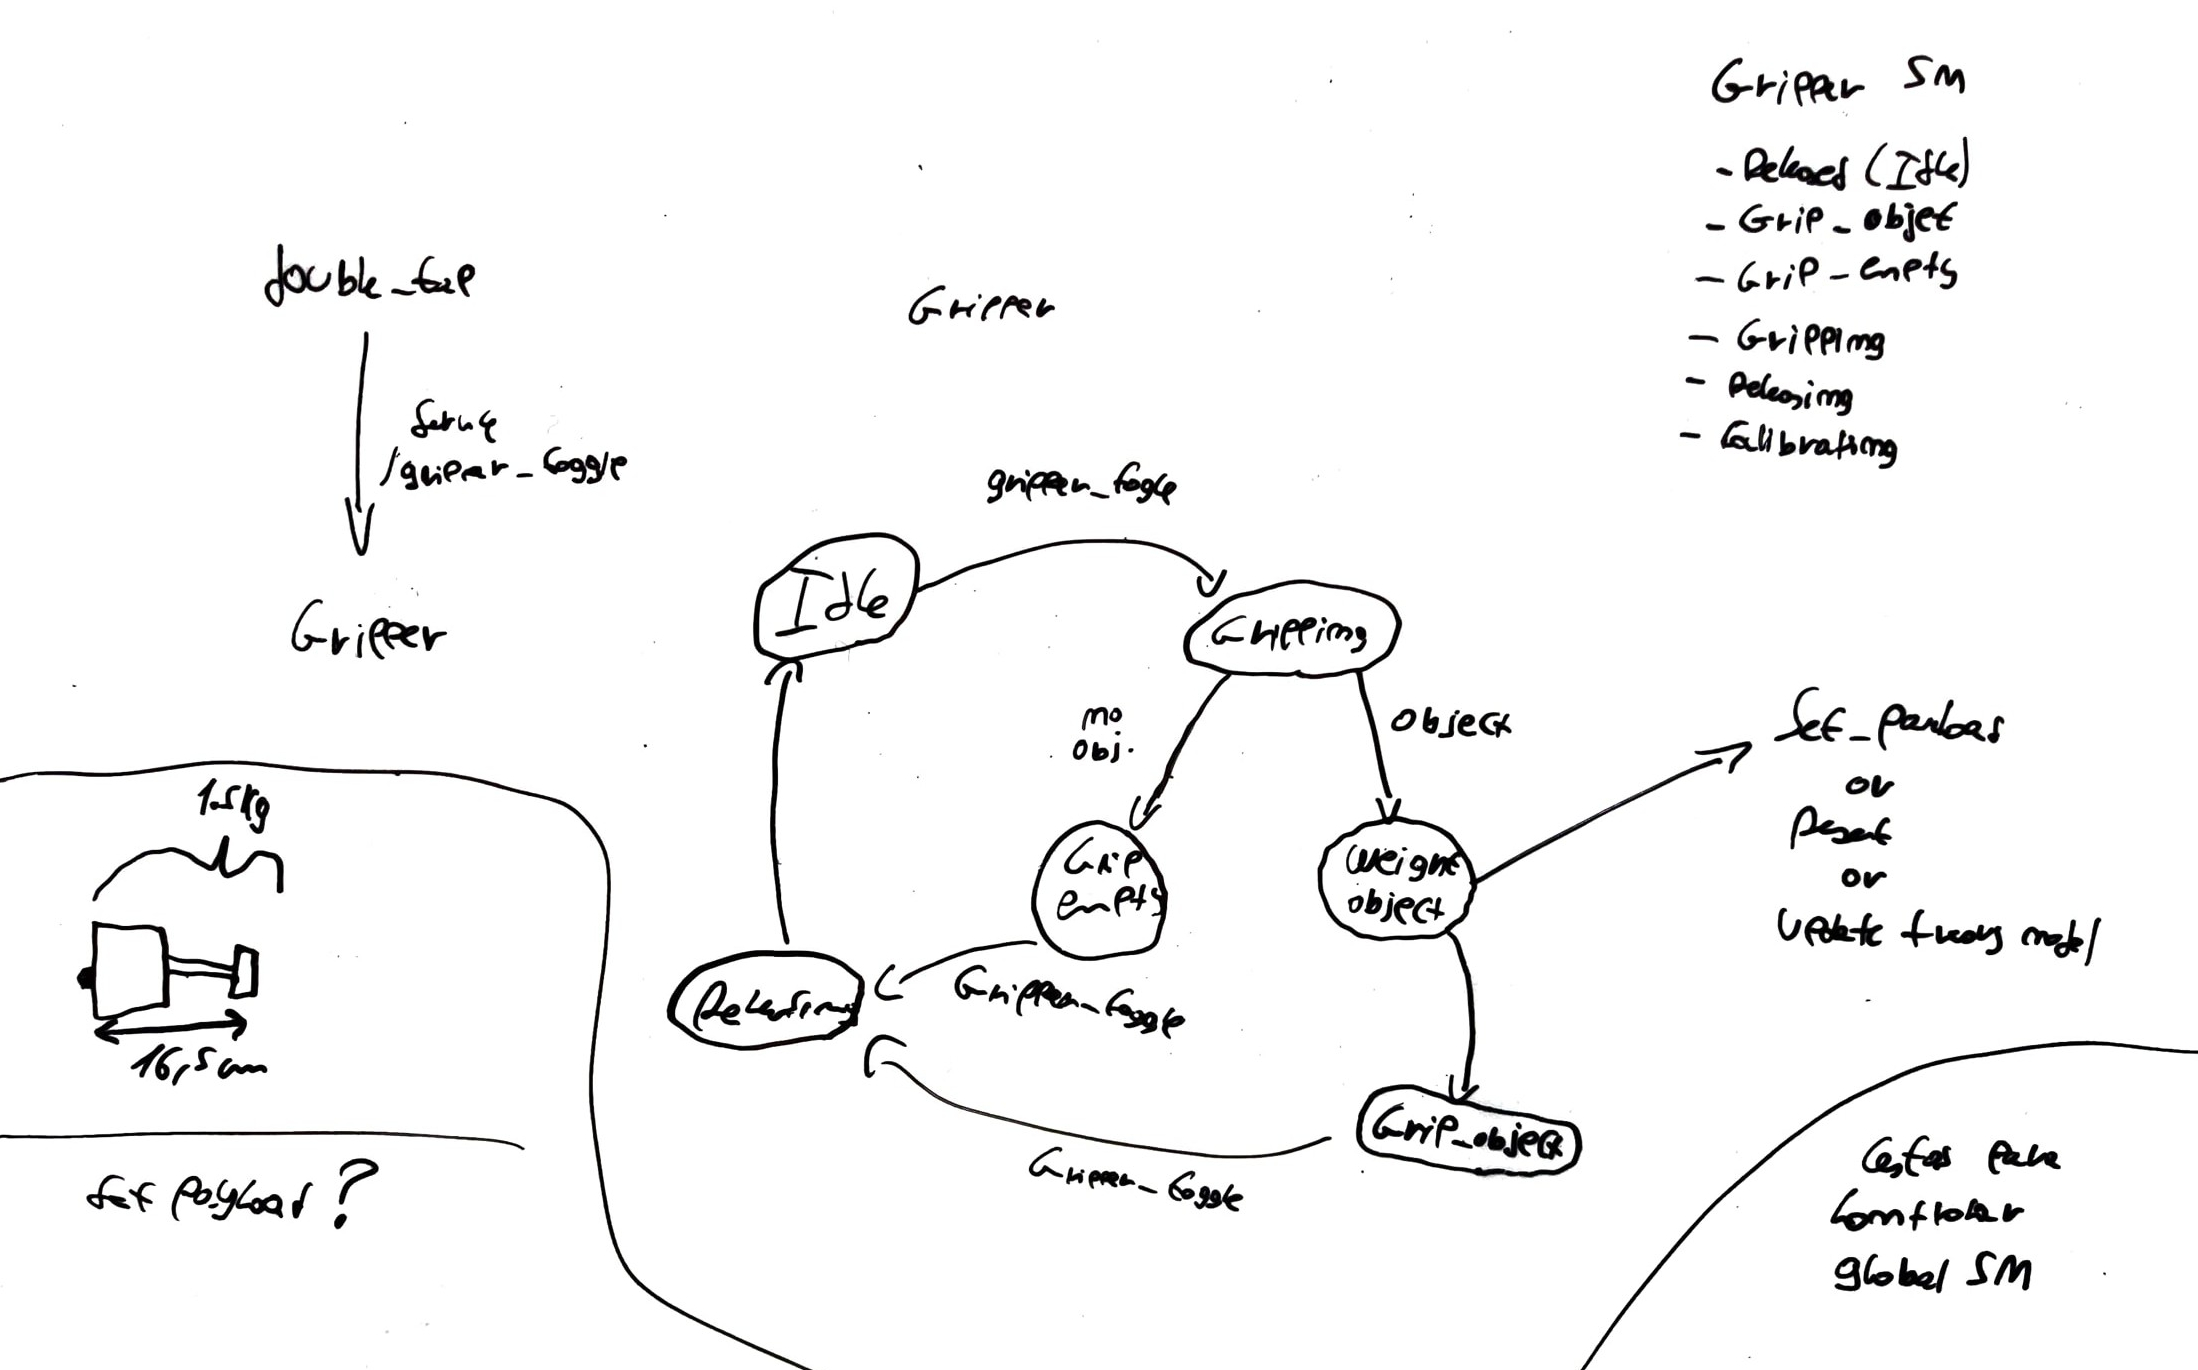 Gripper SM
- Released (Idle)
- Grip_objet
- Grip-empty
- Gripping
- Releasing
- Calibrating
double_tap
/gripper_toggle
Gripper
Gripper
gripper_togle
Idle
Gripping
no
obj.
object
Grip
empty
weight
object
Set_payload
or
or
update model
Releasing
Gripper_toggle
Grip_object
Gripper_toggle
1.5Kg
16,5cm
Set payload?
Gestos para
controlar
global SM